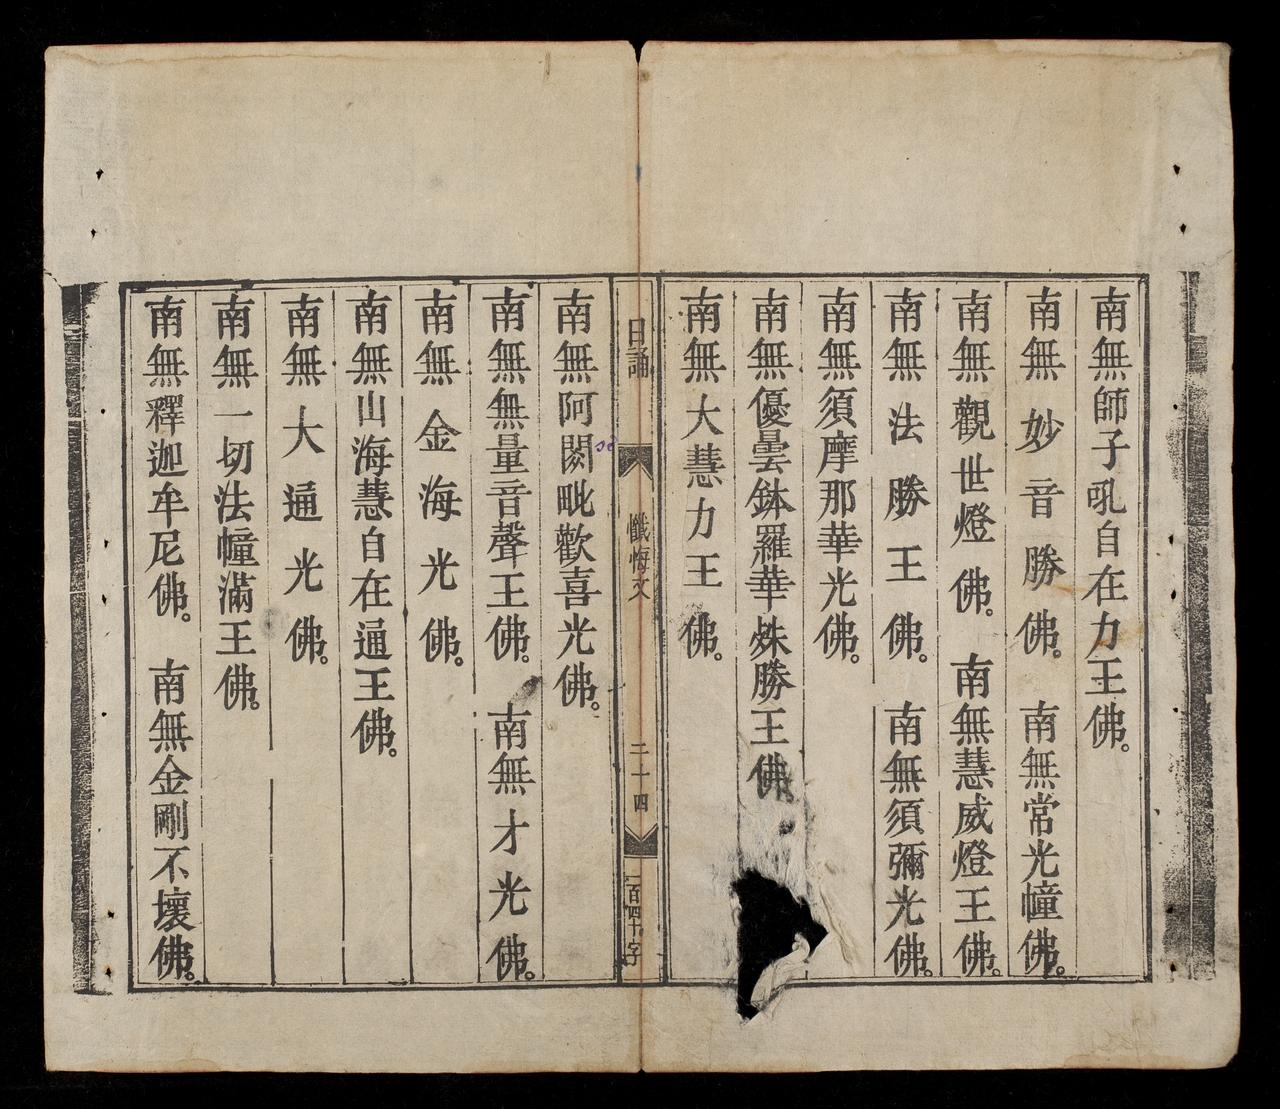 南無師子吼自在力王佛。
南無妙音勝佛。 南無常光幢佛。
南無觀世燈佛。 南無慧威燈王佛。
南無法勝王佛。 南無須彌光佛。
南無須摩那華光佛。
南無優曇鉢羅華殊勝王佛
南無大慧力王佛。
日誦 懺悔文 二十四 一百四十字
南無阿閦毗歡喜光佛。
南無無量音聲王佛。 南無才光佛。
南無金海光佛。
南無山海慧自在通王佛。
南無大通光佛。
南無一切法幢滿王佛。
南無釋迦牟尼佛。 南無金剛不壞佛。